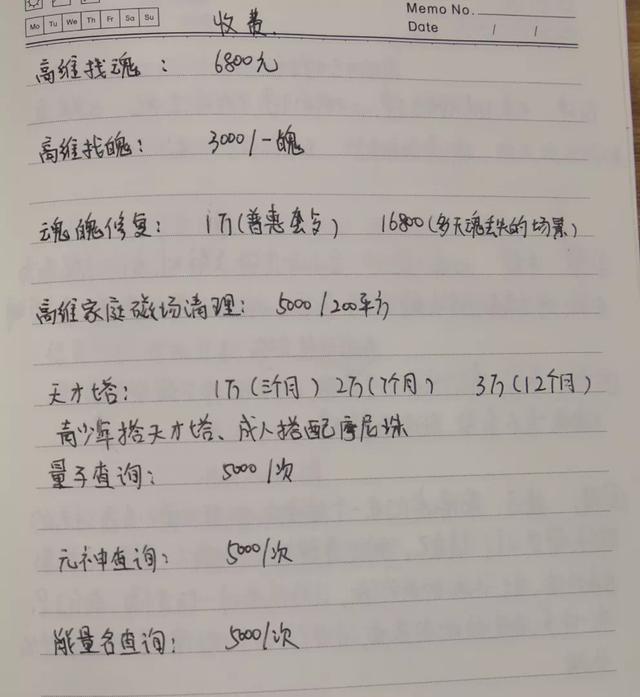 Mo Tu We Th Fr Sa Su
Memo No.
Date / /
收费
高维找魂： 6800元
高维找魄： 3000/一魄
魂魄修复： 1万(普惠套餐) 16800(多天魂丢失的场景)
高维家庭磁场清理： 5000/200平方
天才塔： 1万(三个月) 2万(7个月) 3万(12个月)
青少年搭天才塔、成人搭配摩尼珠
量子查询： 5000/次
元神查询： 5000/次
能量名查询： 5000/次